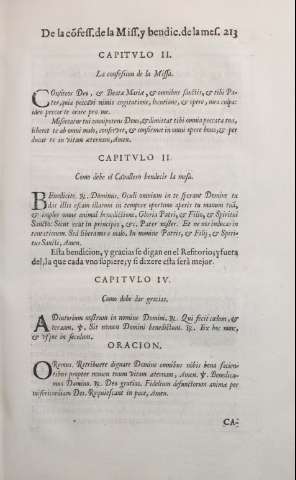 De la cõfess. de la Miss. y bendic. de la mes. 213
CAPITVLO II.
La confession de la Missa.
COnfiteor Deo, & Beatæ Mariæ, & omnibus sanctis, & tibi Pa-
ter, quia peccavi nimis cogitatione, locutione, & opere, mea culpa:
ideo precor te orare pro me.
Misereatur tui omnipotens Deus, & dimittat tibi omnia peccata tua,
liberet te ab omni malo, conservet, & confirmet in omni opere bono, & per
ducat te ad vitam æternam, Amen.
CAPITVLO II.
Como debe el Cavallero bendecir la mesa.
BEnedicite. ℟. Dominus. Oculi omnium in te sperant Domine tu
das illis escam illorum in tempore oportuno aperis tu manum tuã,
& imples omne animal benedictione. Gloria Patri, & Filio, & Spiritui
Sancto. Sicut erat in principio, &c. Pater noster. Et ne nos inducas in
tentationem. Sed libera nos a malo. In nomine Patris, & Filij, & Spiri-
tus Sancti, Amen.
Esta bendicion, y gracias se digan en el Refitorio, y fuera
del, la que cada vno supiere, y si dizere esta serà mejor.
CAPITVLO IV.
Como debe dar gracias.
ADiutorium nostrum in nomine Domini. ℟. Qui fecit cælum, &
terram, ℣. Sit nomen Domini benedictum. ℟. Ex hoc nunc,
& vsque in seculum.
ORACION.
ORemus. Retribuere dignare Domine omnibus nobis bona facien-
tibus propter nomen tuum vitam æternam, Amen. ℣. Benedica-
mus Domino. ℟. Deo gratias. Fidelium defunctorum animæ per
misericordiam Dei. Requiescant in pace, Amen.
CA-